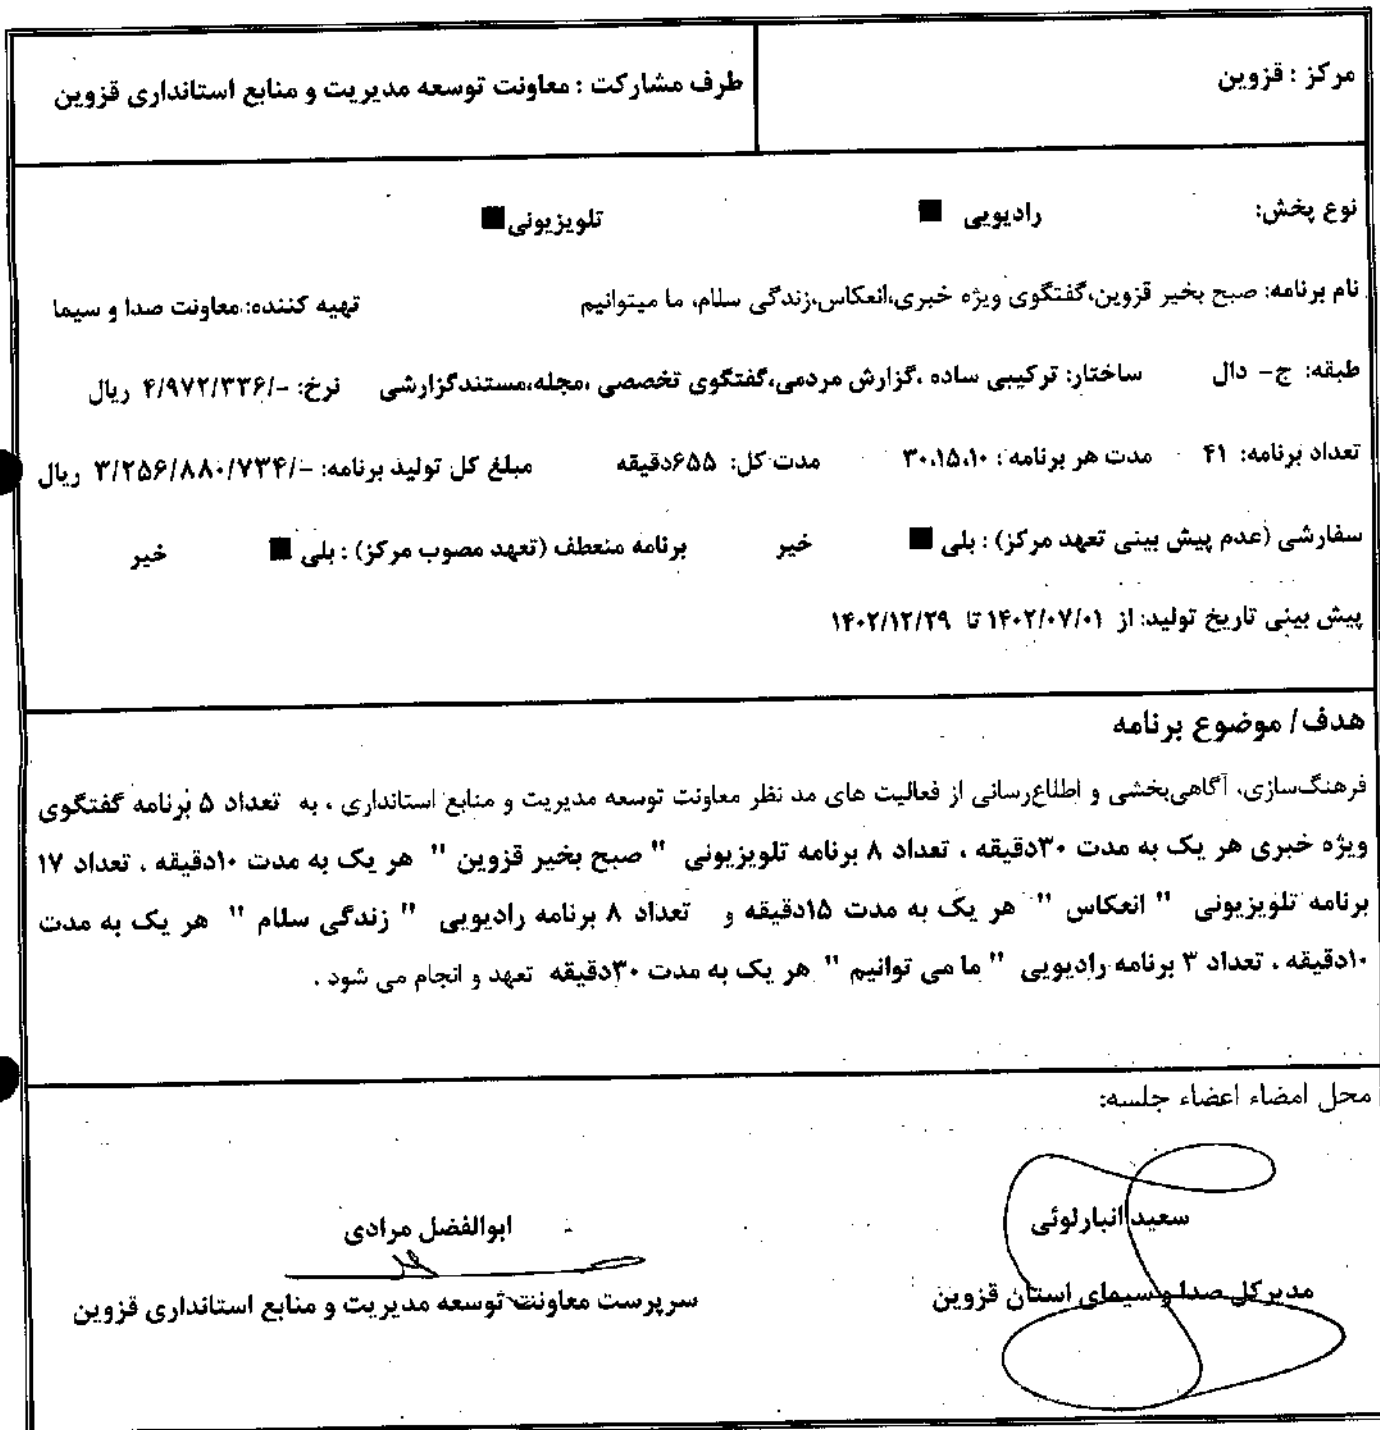 مرکز : قزوین
طرف مشارکت : معاونت توسعه مدیریت و منابع استانداری قزوین
نوع پخش: رادیویی ■ تلویزیونی■
نام برنامه: صبح بخیر قزوین،گفتگوی ویژه خبری،انعکاس،زندگی سلام، ما میتوانیم تهیه کننده: معاونت صدا و سیما
طبقه: ج- دال ساختار: ترکیبی ساده ،گزارش مردمی،گفتگوی تخصصی ،مجله،مستندگزارشی نرخ: -/۴/۹۷۲/۳۳۶ ریال
تعداد برنامه: ۴۱ مدت هر برنامه : ۳۰،۱۵،۱۰ مدت کل: ۶۵۵دقیقه مبلغ کل تولید برنامه: -/۳/۲۵۶/۸۸۰/۷۳۴ ریال
سفارشی (عدم پیش بینی تعهد مرکز) : بلی ■ خیر برنامه منعطف (تعهد مصوب مرکز) : بلی ■ خیر
پیش بینی تاریخ تولید: از ۱۴۰۲/۰۷/۰۱ تا ۱۴۰۲/۱۲/۲۹
هدف/ موضوع برنامه
فرهنگ‌سازی، آگاهی‌بخشی و اطلاع‌رسانی از فعالیت های مد نظر معاونت توسعه مدیریت و منابع استانداری ، به تعداد ۵ برنامه گفتگوی
ویژه خبری هر یک به مدت ۳۰دقیقه ، تعداد ۸ برنامه تلویزیونی " صبح بخیر قزوین " هر یک به مدت ۱۰دقیقه ، تعداد ۱۷
برنامه تلویزیونی " انعکاس " هر یک به مدت ۱۵دقیقه و تعداد ۸ برنامه رادیویی " زندگی سلام " هر یک به مدت
۱۰دقیقه ، تعداد ۳ برنامه رادیویی " ما می توانیم " هر یک به مدت ۳۰دقیقه تعهد و انجام می شود .
محل امضاء اعضاء جلسه:
سعید انبارلوئی
ابوالفضل مرادی
مدیرکل صدا و سیمای استان قزوین
سرپرست معاونت توسعه مدیریت و منابع استانداری قزوین